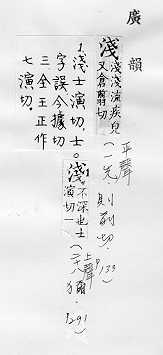 廣韻
淺 淺淺流疾皃
又倉翦切
平聲
(一先,則前切,P133)
淺 不深也士
演切一
上聲
(二十八獮,P291)
1.淺士演切.士
字誤今據切
三全王正作
七演切.